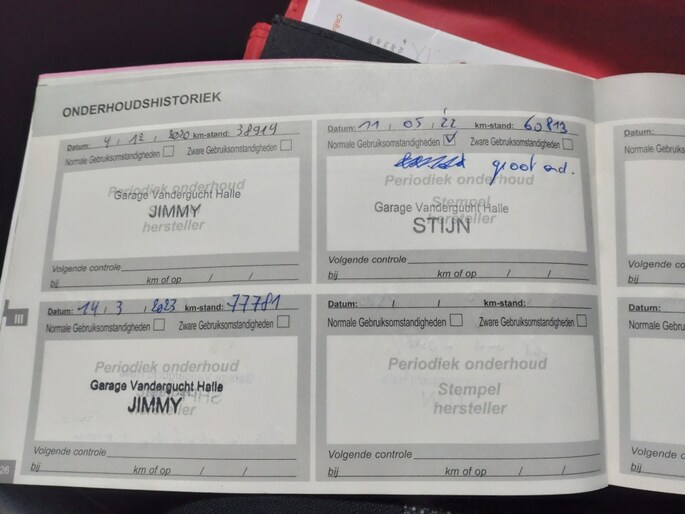 ONDERHOUDSHISTORIEK
Datum: 4 , 12 , 2020 km-stand: 38919
Normale Gebruiksomstandigheden Zware Gebruiksomstandigheden
Periodiek onderhoud
Garage Vandergucht Halle
JIMMY
hersteller
Volgende controle
bij km of op / /
Datum: 11 , 05 , 22 km-stand: 60813
Normale Gebruiksomstandigheden Zware Gebruiksomstandigheden
groot ond.
Periodiek onderhoud
Stempel
Garage Vandergucht Halle
STIJN
hersteller
Volgende controle
bij km of op / /
III
Datum: 14 , 3 , 2023 km-stand: 77781
Normale Gebruiksomstandigheden Zware Gebruiksomstandigheden
Periodiek onderhoud
Garage Vandergucht Halle
JIMMY
Volgende controle
bij km of op / /
Datum: / / km-stand:
Normale Gebruiksomstandigheden Zware Gebruiksomstandigheden
Periodiek onderhoud
Stempel
hersteller
Volgende controle
bij km of op / /
26
Datum:
Normale Gebruiks
Volgende co
bij
Datum:
Normale Gebruik
Volgende c
bij